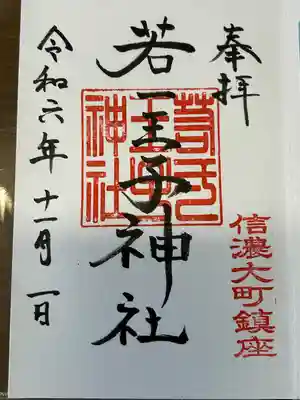 奉拝
信濃大町鎮座
若一王子神社
若一王子神社
令和六年十一月一日